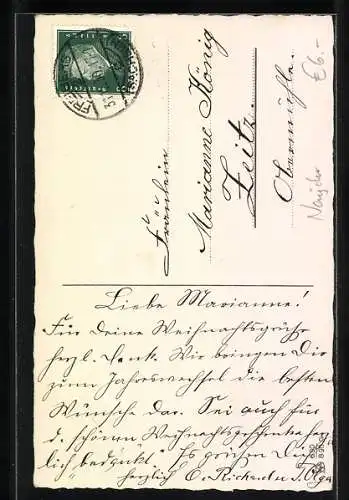 Fräulein
Marianne König
Zeitz.
Obermühle.
£6.-
Liebe Marianne!
Für Deine Weihnachtsgrüße
herzl. Dank. Wir bringen Dir
zum Jahreswechsel die besten
Wünsche dar. Sei auch für
d. schönen Weihnachtsgeschenke herz-
lich bedankt. Es grüßen Dich
herzlich O. u. Olga